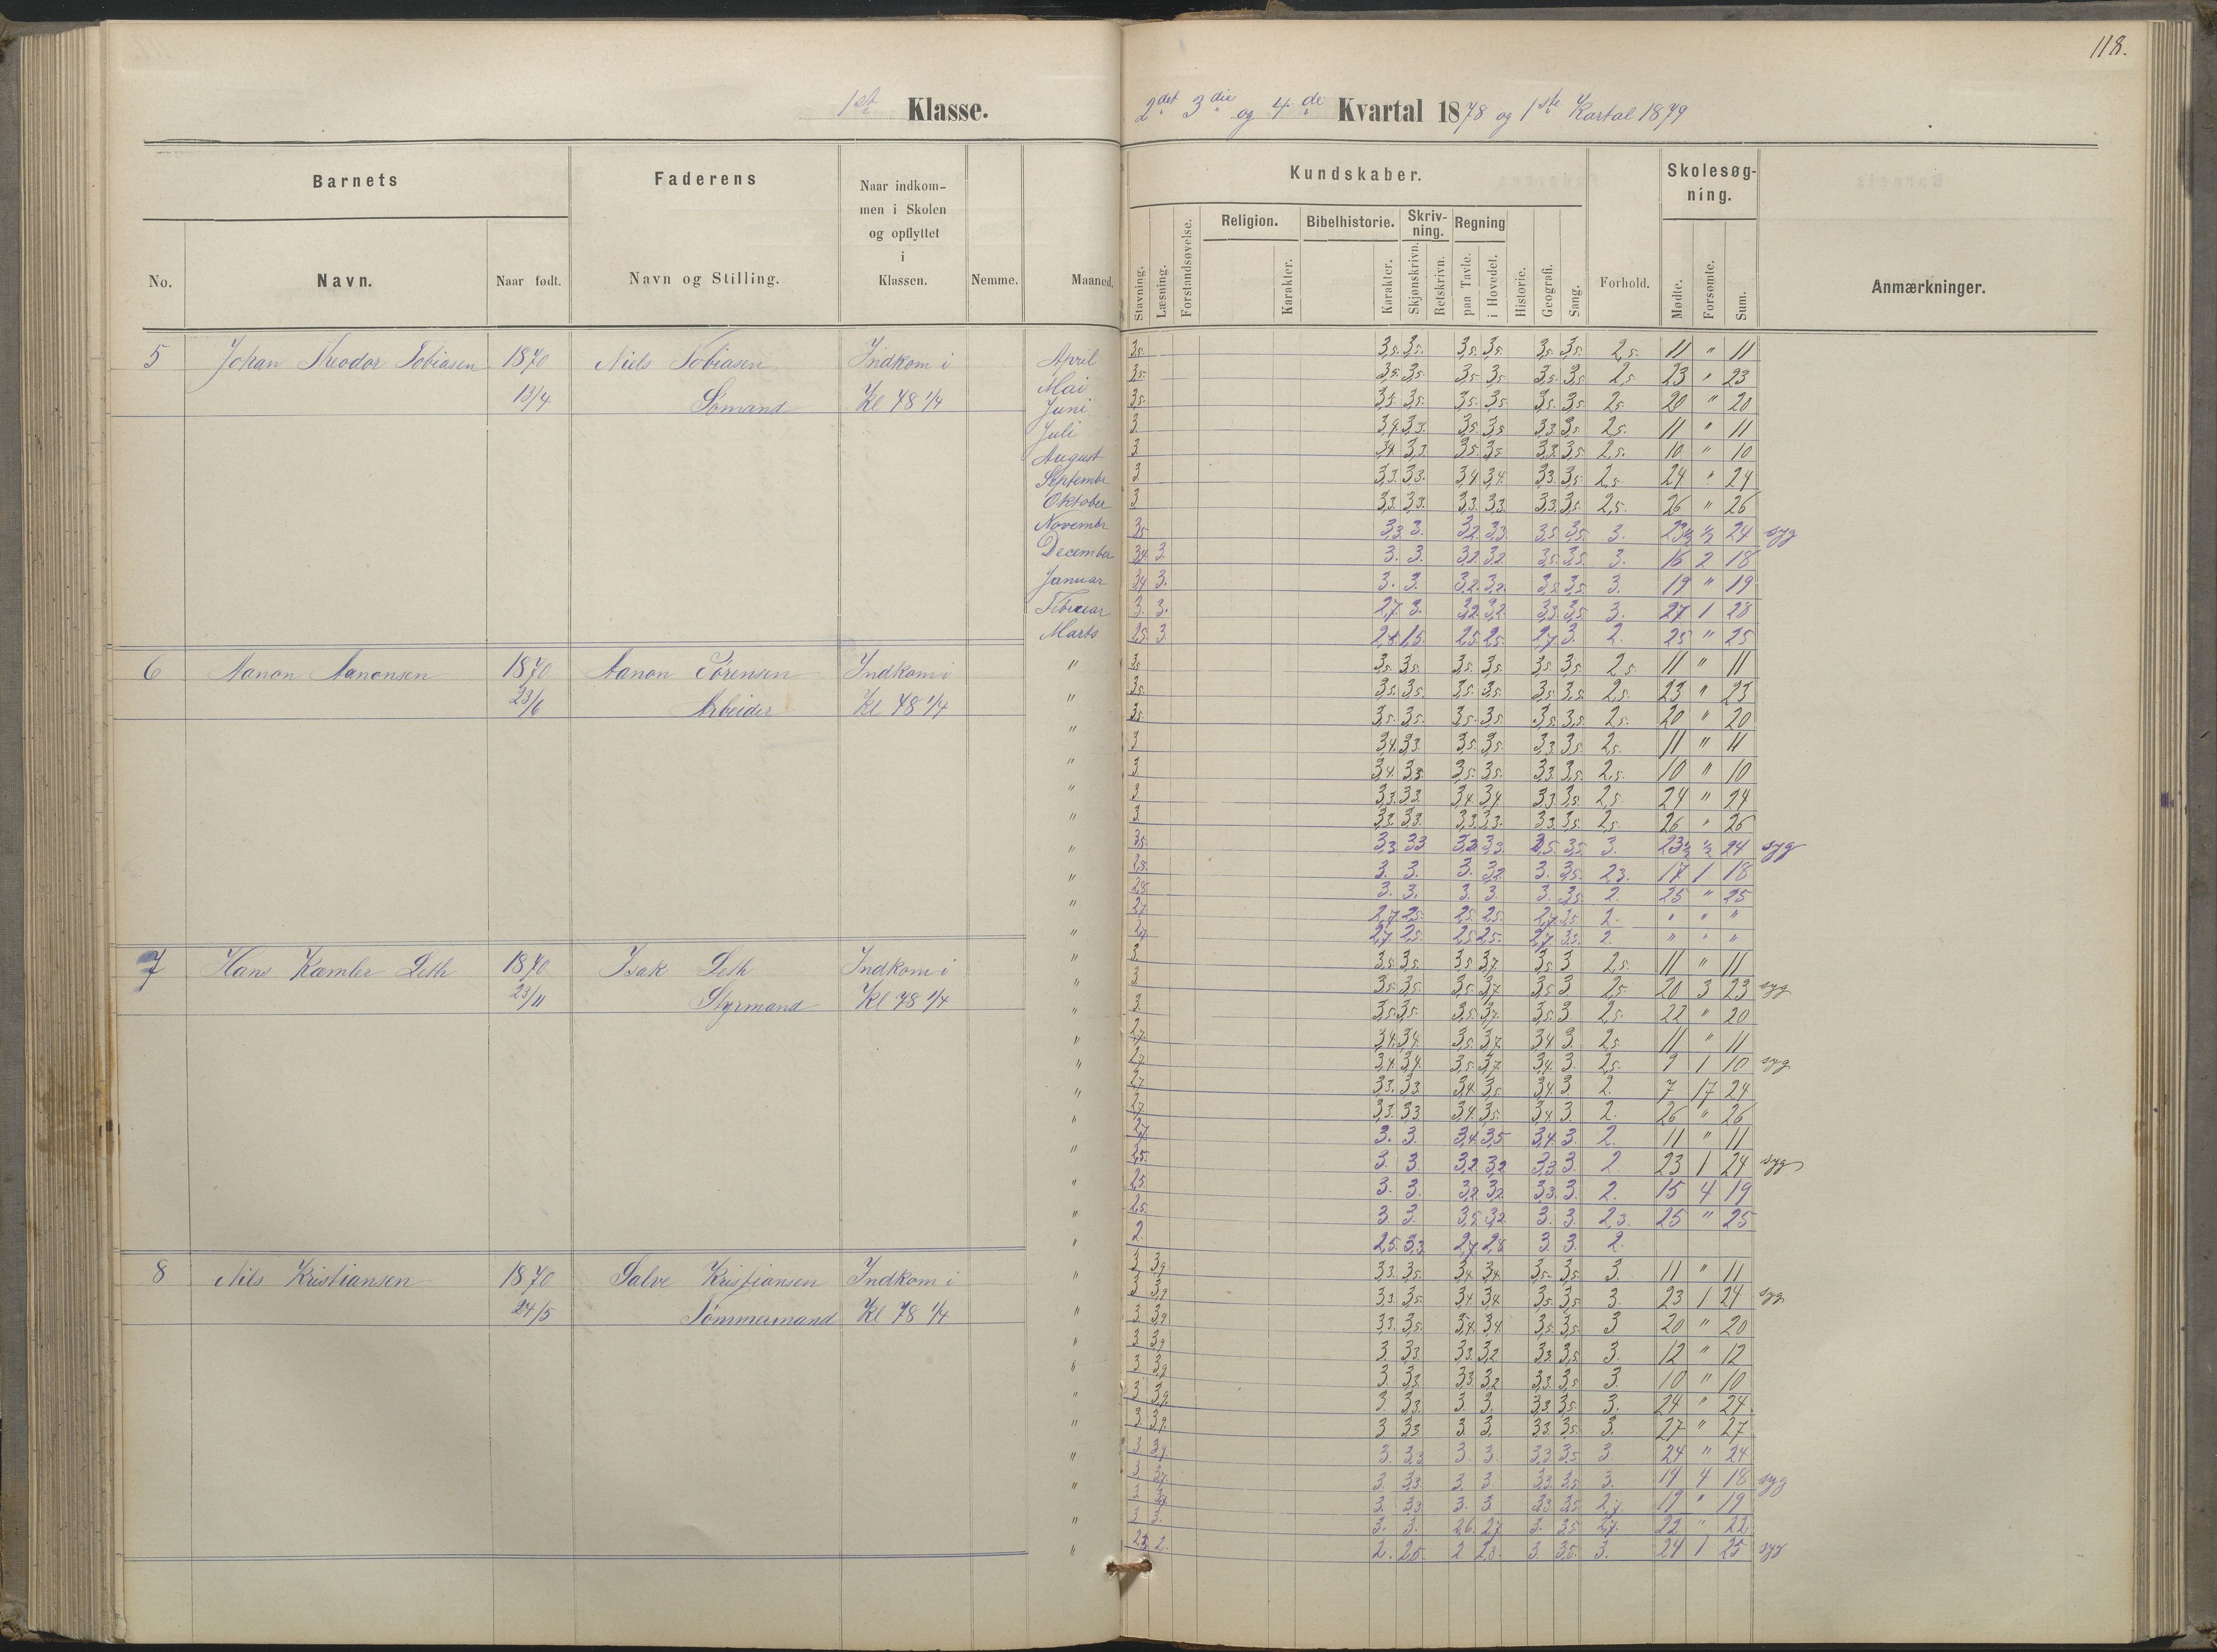 118.
1st Klasse.
2det 3die og 4de Kvartal 1878 og 1ste Kartal 1879
Barnets
Faderens
Naar indkom-
men i Skolen
og opflyttet
i
Klassen.
Nemme.
Maaned.
Kundskaber.
Forhold.
Skolesøg-
ning.
Anmærkninger.
No.
Navn.
Naar født.
Navn og Stilling.
Stavning.
Læsning.
Forstandsøvelse.
Religion.
Karakter.
Bibelhistorie.
Karakter.
Skriv-
ning.
Skjønskrivn.
Retskrivn.
Regning
paa Tavle.
i Hovedet.
Historie.
Geografi.
Sang.
Mødte.
Forsømte.
Sum.
5 Johan Theodor Tobiasen 1870 Niels Tobiasen Indkom i
13/4 Sømand Kl 78 1/4
April 3,5. 3,5. 3,5. 3,5. 3,5. 3,5. 3,5. 2,5. 11 " 11
Mai 3,5. 3,5. 3,5. 3,5. 3,5. 3,5. 3,5. 2,5 23 " 23
Juni 3,5. 3,5. 3,5. 3,5. 3,5. 3,5. 3,5. 2,5. 20 " 20
Juli 3 3,4. 3,3. 3,5. 3,5 3,3 3,5 2,5. 11 " 11
August 3 3,4. 3,3 3,5. 3,5. 3,3. 3,5 2,5. 10 " 10
Septembr 3 3,3. 3,3. 3,4 3,4. 3,3. 3,5 2,5. 24 " 24
Oktober 3 3,3. 3,3. 3,3. 3,3. 3,3. 3,5. 2,5. 26 " 26
Novembr 3,5 3,3. 3. 3,2. 3,3. 3,5. 3,5. 3. 23½ ½ 24 syg
December 3,4. 3. 3. 3. 3,2. 3,2 3,5. 3,5. 3. 16 2 18
Januar 3,4 3. 3. 3. 3,2. 3,2. 3,5 3,5. 3. 19 " 19
Februar 3. 3. 2,7. 3. 3,2. 3,2 3,3. 3,5 3. 27 1 28
Marts 2,5. 3 2,5. 2,5. 2,7 3. 2. 25 " 25
6 Aanon Aanonsen 1870 Aanon Sørensen Indkom i
23/6 Arbeider Kl 78 1/4
" 3,5 3,5. 3,5. 3,5. 3,5. 3,5. 3,5. 2,5. 11 " 11
" 3,5. 3,5. 3,5. 3,5. 3,5. 3,5. 3,5. 2,5. 23 " 23
" 3,5. 3,5. 3,5. 3,5. 3,5. 3,5. 3,5. 2,5. 20 " 20
" 3 3,4. 3,3. 3,5. 3,5. 3,3. 3,5. 2,5. 11 " 11
" 3 3,4. 3,3 3,5. 3,5. 3,3 3,5. 2,5. 10 " 10
" 3 3,3. 3,3. 3,4 3,4 3,3 3,5. 2,5. 24 " 24
" 3. 3,3. 3,3. 3,3. 3,3. 3,3. 3,5. 2,5. 26 " 26
" 3,5. 3,3 3,3 3,3. 3,5. 3. 23½ ½ 24 syg
" 2,8. 3. 3. 3. 3,2. 3. 3,5. 2,3. 17 1 18
" 2,8. 3. 3. 3. 3. 3. 3,5. 2. 25 " 25
" 2,7 2,7. 2,5. 2,5. 2,5. 2,7. 3,5. 2. " " "
" 2,7 2,7. 2,5. 2,5. 2,5. 2,7. 3,5. 2. " " "
7 Hans Kamler Leth 1870 Isak Leth Indkom i
23/11 Styrmand Kl 78 1/4
" 3 3,5. 3,5. 3,5 3,7 3,5 3 2,5. 11 " 11
" 3 3,5. 3,5. 3,5. 3,7 3,5 3 2,5. 20 3 23 syg
" 3. 3,5. 3,5. 3,5. 3,7. 3,5 3 2,5. 22 " 20
" 2,7. 3,4. 3,4. 3,5. 3,7 3,4 3. 2,5. 11 " 11
" 2,7. 3,4. 3,4. 3,5. 3,7 3,4. 3. 2,5. 9 1 10 syg
" 2,7 3,3. 3,3 3,4. 3,5 3,4. 3 2. 7 17 24
" 2,7. 3,3. 3,3 3,4. 3,5. 3,4. 3. 2. 26 " 26
" 2,7. 3. 3. 3,4. 3,5 3,4. 3. 2. 11 " 11
" 2,5. 3. 3. 3,2 3,2 3,3. 3. 2 23 1 24 syg
" 2,5. 3. 3. 3,2. 3,2 3,3. 3. 2. 15 4 19
" 2,5. 3. 3. 3,5 3,2 3. 3. 2,3. 25 " 25
" 2. 2,5. 3,3. 2,7 2,8 3. 3. 2.
8 Nils Kristiansen 1870 Salve Kristiansen Indkom i
24/5 Tømmermand Kl 78 1/4
" 3 3,9 3,3. 3,5. 3,4 3,4 3,5. 3,5 3. 11 " 11
" 3 3,9 3,3. 3,5 3,4 3,4 3,5. 3,5 3. 23 1 24 syg
" 3 3,9 3,3. 3,5. 3,4. 3,4. 3,5. 3,5. 3 20 " 20
" 3 3,9 3. 3,3 3,3. 3,2 3,3. 3,5 3. 12 " 12
" 3 3,9 3. 3,3 3,3. 3,2 3,3. 3,5 3. 10 " 10
" 3 3,9. 3 3,3. 3. 3. 3,3. 3,5. 3. 24 " 24.
" 3 3,9. 3 3,3 3. 3. 3,3. 3,5. 3. 27 " 27
" 3 3,7. 3. 3,3 3. 3. 3,3 3,5 3. 24 " 24
" 3. 3,7. 3. 3,3 3. 3 3,3. 3,5 3. 14 4 18 syg
" 3 3. 3,3. 3. 3 3,3. 3,5. 2,7. 19 " 19
" 3. 3. 3. 3. 2,6. 2,7 3. 3,5. 2,7. 22 " 22
" 2,3 2. 2. 2,5. 2. 2,3. 3. 3,5. 3. 24 1 25 syg